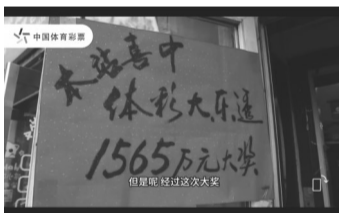 中国体育彩票
本站喜中
体彩大乐透
1565万元大奖
但是呢 经过这次大奖